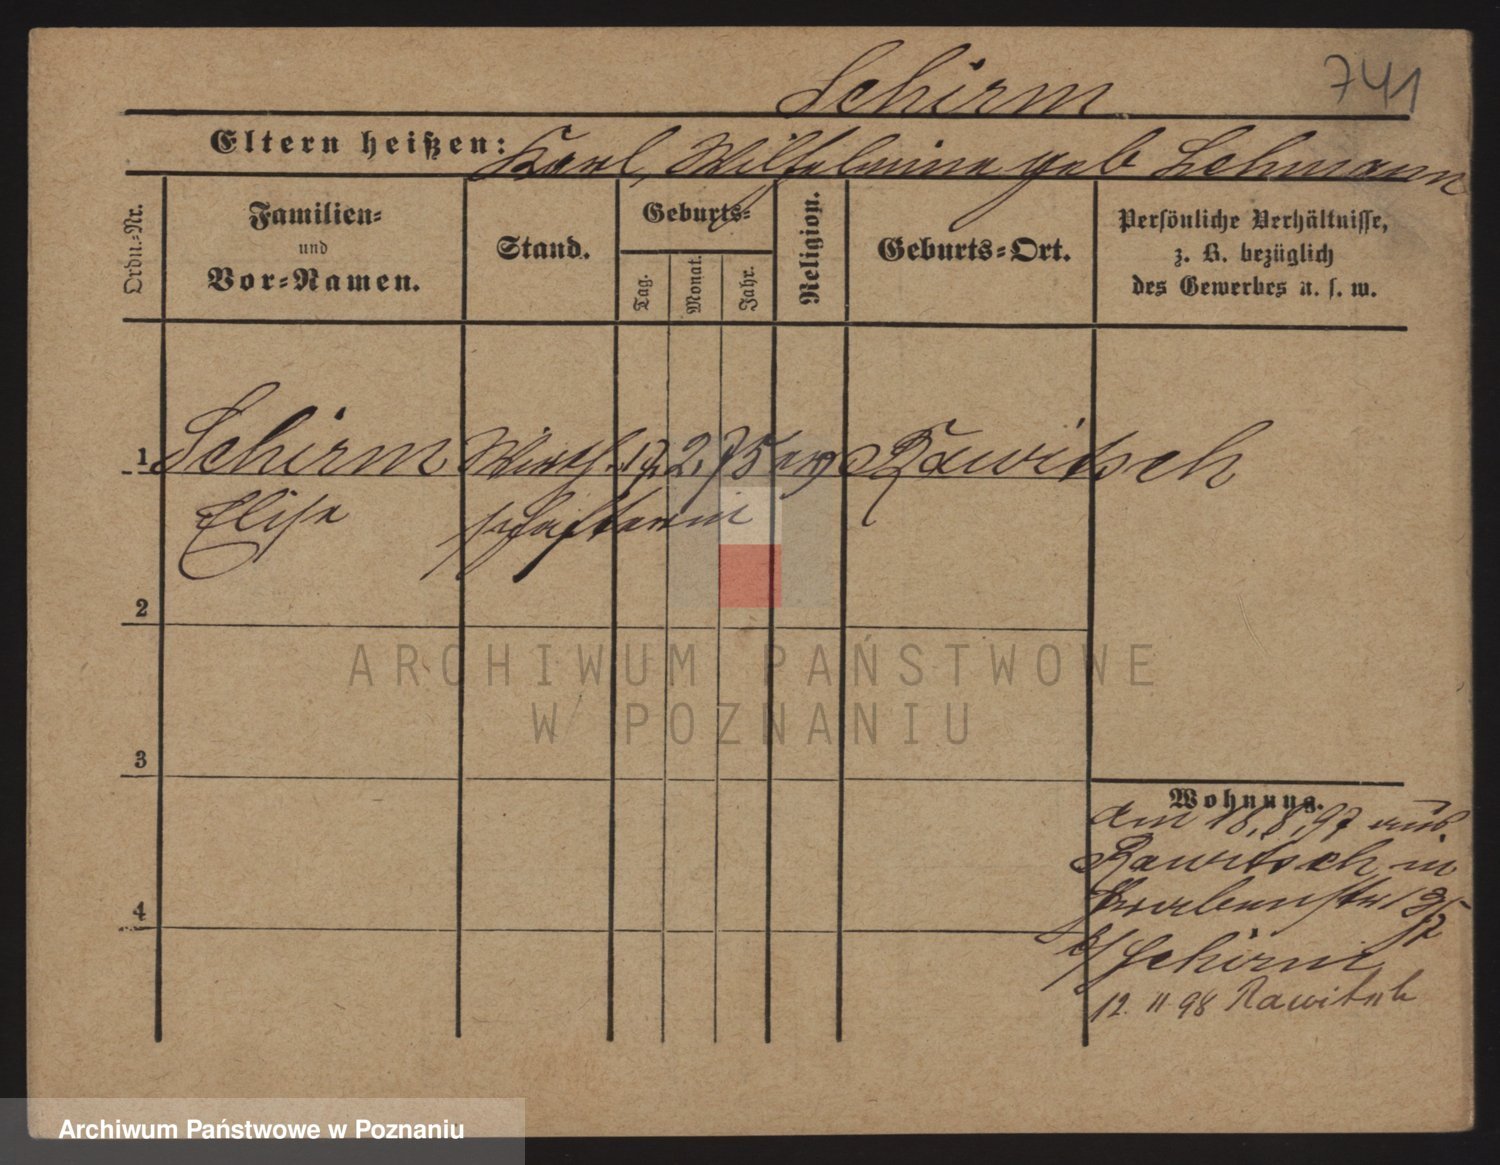 Schirm
741
Eltern heißen: Karl, Wilhelmine geb Lehmann
Ordn.-Nr.
Familien-
und
Vor-Namen.
Stand.
Geburts-
Tag.
Monat.
Jahr.
Religion.
Geburts-Ort.
Persönliche Verhältnisse,
z. B. bezüglich
des Gewerbes u. s. w.
1 Schirm Wirth. 17. 2. 75 ev Rawitsch
Elise schafterin
2
3
4
Wohnung.
am 18. 8. 97 aus
Rawitsch in
b/ Schirm
12. 11 98 Rawitsch
ARCHIWUM PAŃSTWOWE
W POZNANIU
Archiwum Państwowe w Poznaniu